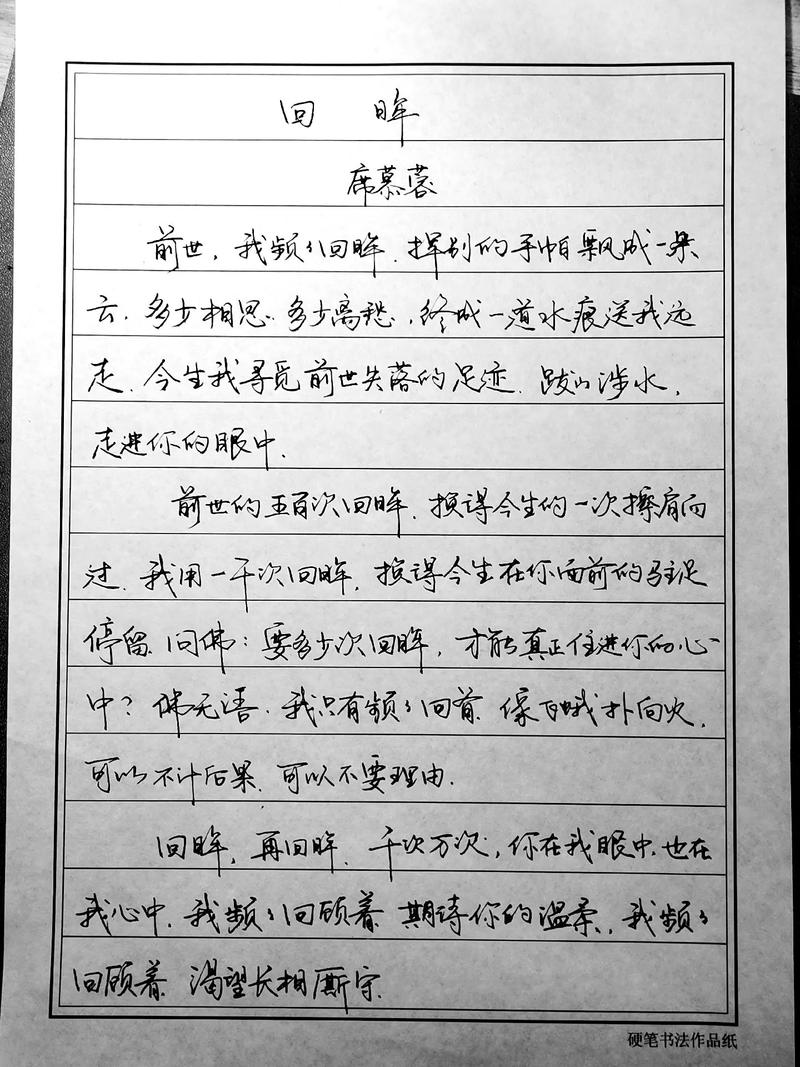 回 眸
席慕蓉
前世，我频频回眸，挥别的手帕飘成一朵
云，多少相思，多少离愁，终成一道水痕送我远
走。今生我寻觅前世失落的足迹，跋山涉水，
走进你的眼中。
前世的五百次回眸，换得今生的一次擦肩而
过。我用一千次回眸，换得今生在你面前的驻足
停留。问佛：要多少次回眸，才能真正住进你的心
中？佛无语，我只有频频回首，像飞蛾扑向火，
可以不计后果，可以不要理由。
回眸，再回眸，千次万次，你在我眼中，也在
我心中，我频频回顾着，期待你的温柔，我频频
回顾着，渴望长相厮守。
硬笔书法作品纸